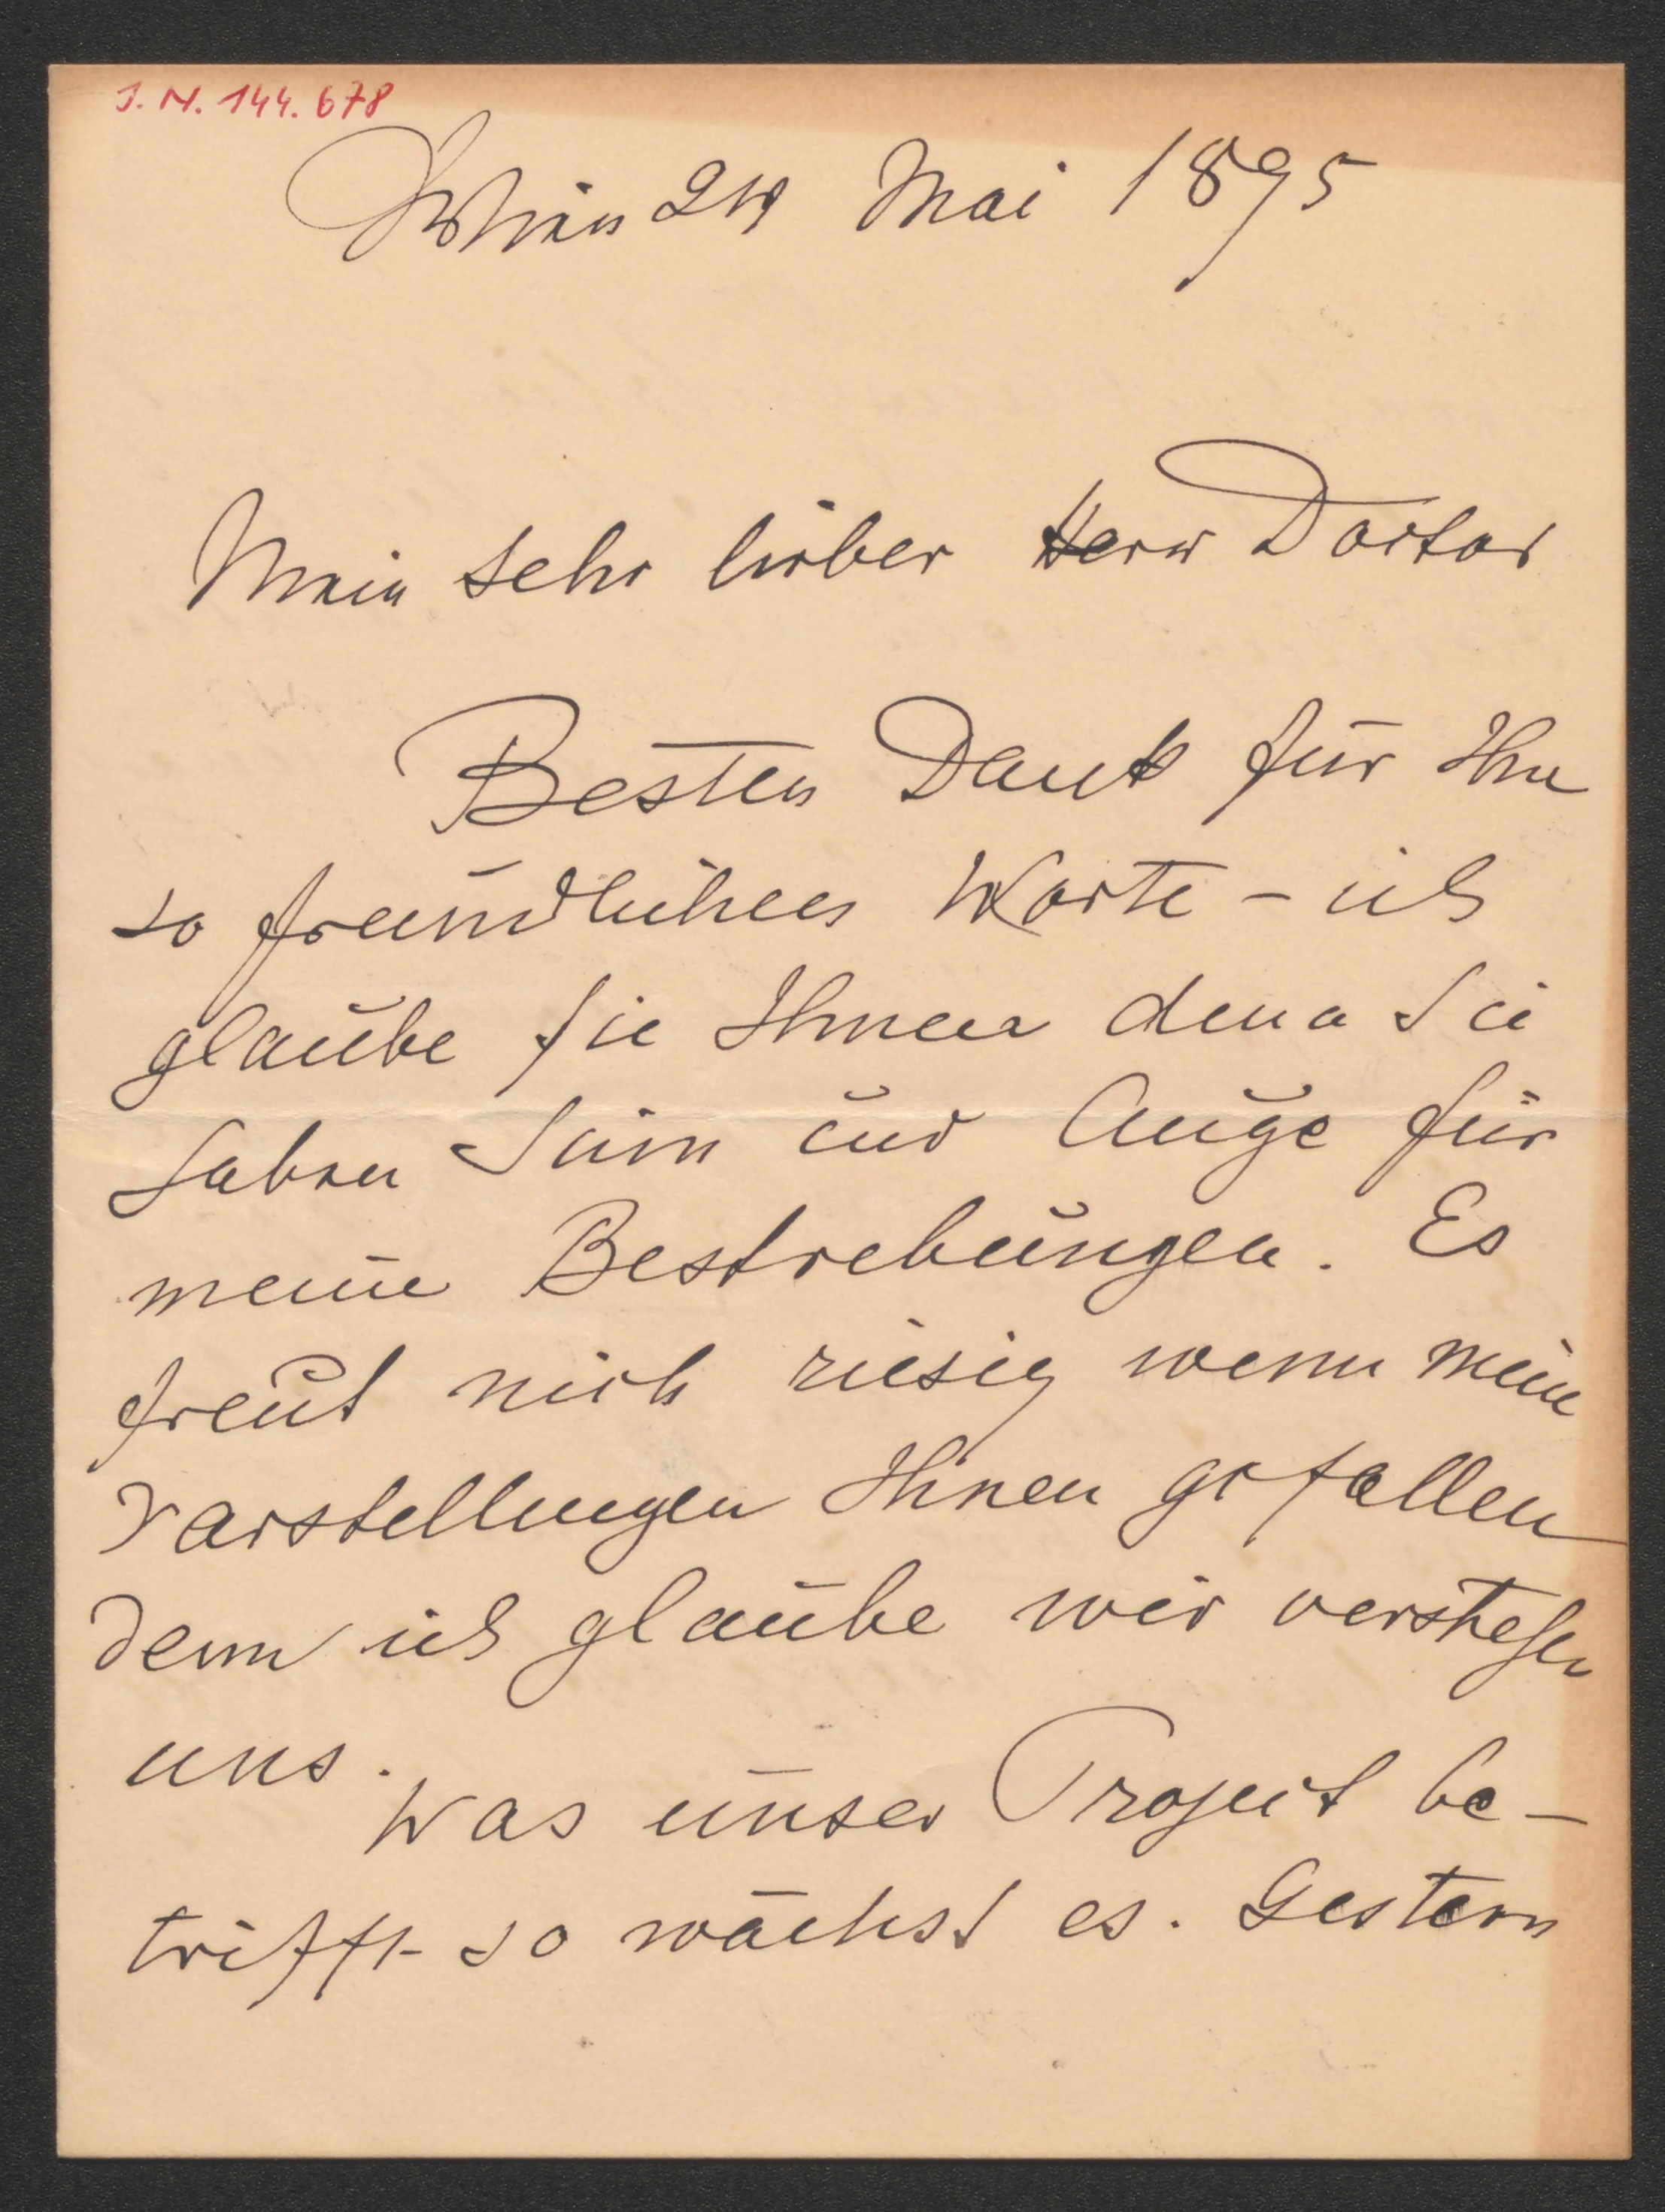 J. N. 144.678
Wien 24 Mai 1895
Mein sehr lieber Herr Doctor
Besten Dank für Ihre
so freundlichen Worte - ich
glaube sie Ihnen denn Sie
haben Sinn und Auge für
meine Bestrebungen. Es
freut mich riesig wenn meine
Vorstellungen Ihnen gefallen
denn ich glaube wir verstehen
uns.
Was unser Project be-
trifft so wächst es. Gestern